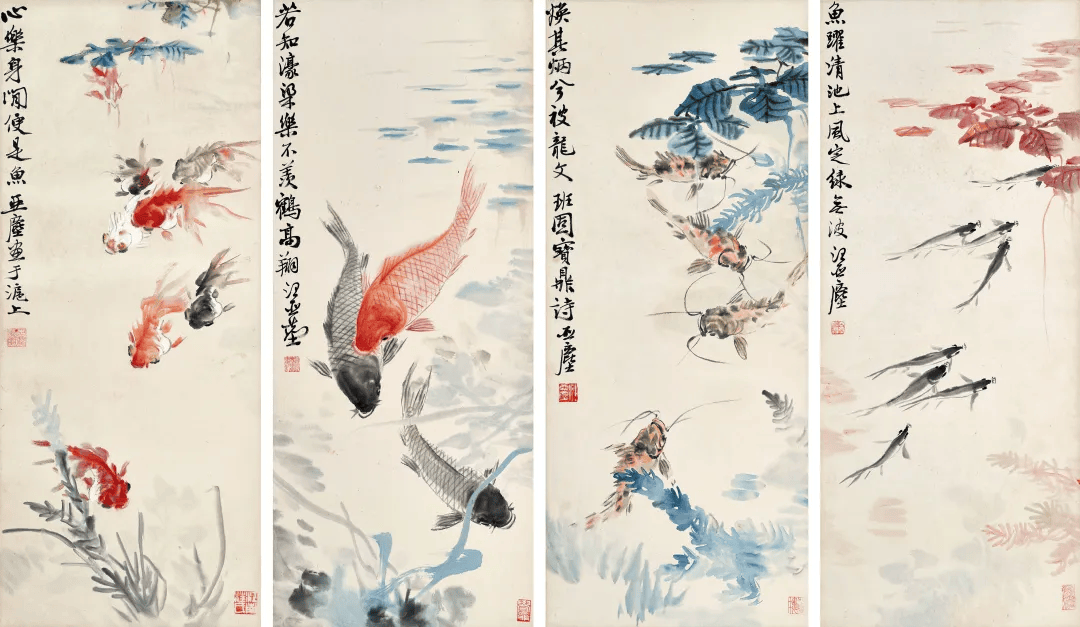 心樂身閒便是魚 亞塵畫于滬上
若知濠梁樂不羨鶴高翔 汪亞塵
煥其炳兮被龍文 班固寶鼎詩 亞塵
魚躍清池上風定綠無波 汪亞塵